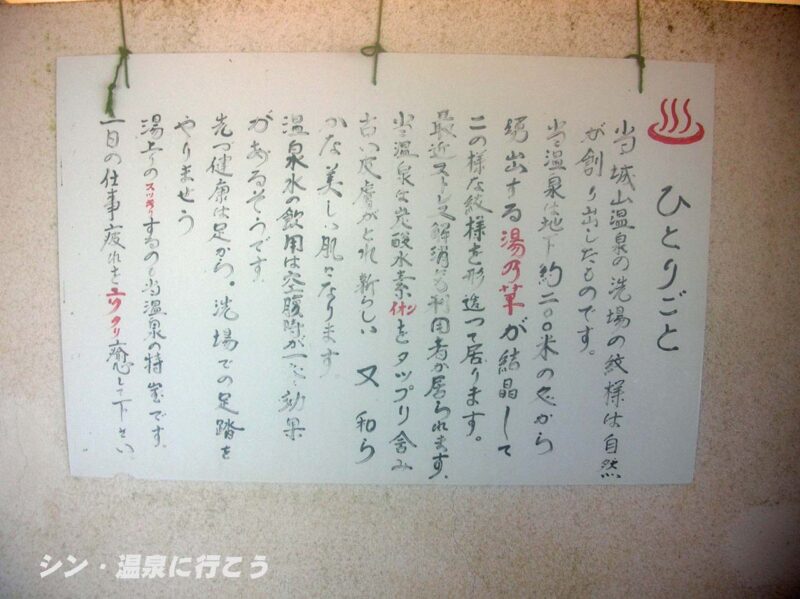 ♨ ひとりごと
当城山温泉の洗場の紋様は自然
が創り出したものです。
当温泉は地下約二〇〇米の処から
湧出する湯乃華が結晶して
この様な紋様を形造つて居ります。
最近ストレス解消にも利用者が居られます。
当温泉は炭酸水素イオンをタップリ含み
古い皮膚がとれ新らしい 又 和ら
かな美しい肌になります。
温泉水の飲用は空腹時が一ばん効果
があるそうです。
先づ健康は足から。洗場での足踏を
やりませう
湯上りのスッキリするのも当温泉の特徴です。
一日の仕事疲れをユックリ癒して下さい
シン・温泉に行こう